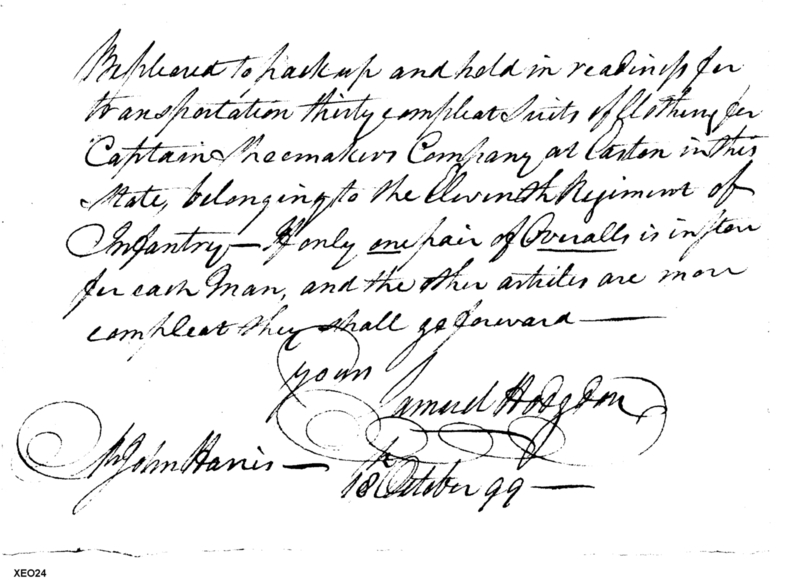 Be pleased to pack up and hold in readiness for
transportation thirty compleat suits of Clothing for
Captain Shoemakers Company at Easton in this
State, belonging to the Eleventh Regiment of
Infantry — If only one pair of Overalls is in store
for each Man, and the other articles are more
compleat they shall go forward —
yours
Samuel Hodgdon
Mr John Harris —
18th October 99 —
XEO24